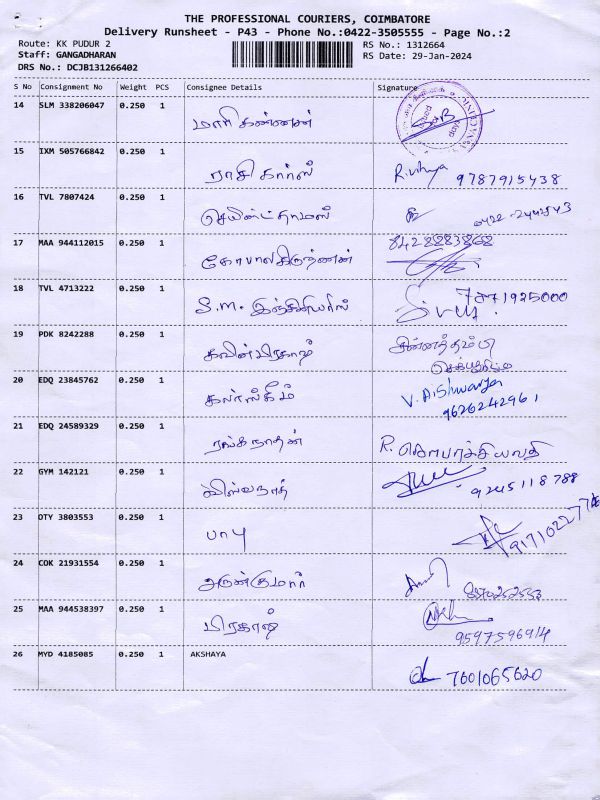 THE PROFESSIONAL COURIERS, COIMBATORE
Delivery Runsheet - P43 - Phone No.:0422-3505555 - Page No.:2
Route: KK PUDUR 2
RS No.: 1312664
Staff: GANGADHARAN
RS Date: 29-Jan-2024
DRS No.: DCJB131266402
S No Consignment No Weight PCS Consignee Details Signature
14 SLM 338206047 0.250 1 மாரி கண்ணன்
15 IXM 505766842 0.250 1 ராசி கார்ஸ் R.vidhya 9787915438
16 TVL 7807424 0.250 1 செயின்ட் தாமஸ் 0422-2442543
17 MAA 944112015 0.250 1 கோபாலகிருஷ்ணன் 8428883868
18 TVL 4713222 0.250 1 S.M. இஞ்சினியரிங் 7871925000
19 PDK 8242288 0.250 1 கவின்பிரகாஷ் சின்னத்தம்பி
20 EDQ 23845762 0.250 1 V. Aishwarya
9626242961
21 EDQ 24589329 0.250 1 ரங்கநாதன் R.
22 GYM 142121 0.250 1 விஸ்வநாத் 9245118788
23 OTY 3803553 0.250 1 பாபு
24 COK 21931554 0.250 1 அருண்குமார் 8870252553
25 MAA 944538397 0.250 1 பிரகாஷ்
9597596914
26 MYD 4185085 0.250 1 AKSHAYA 7601065620